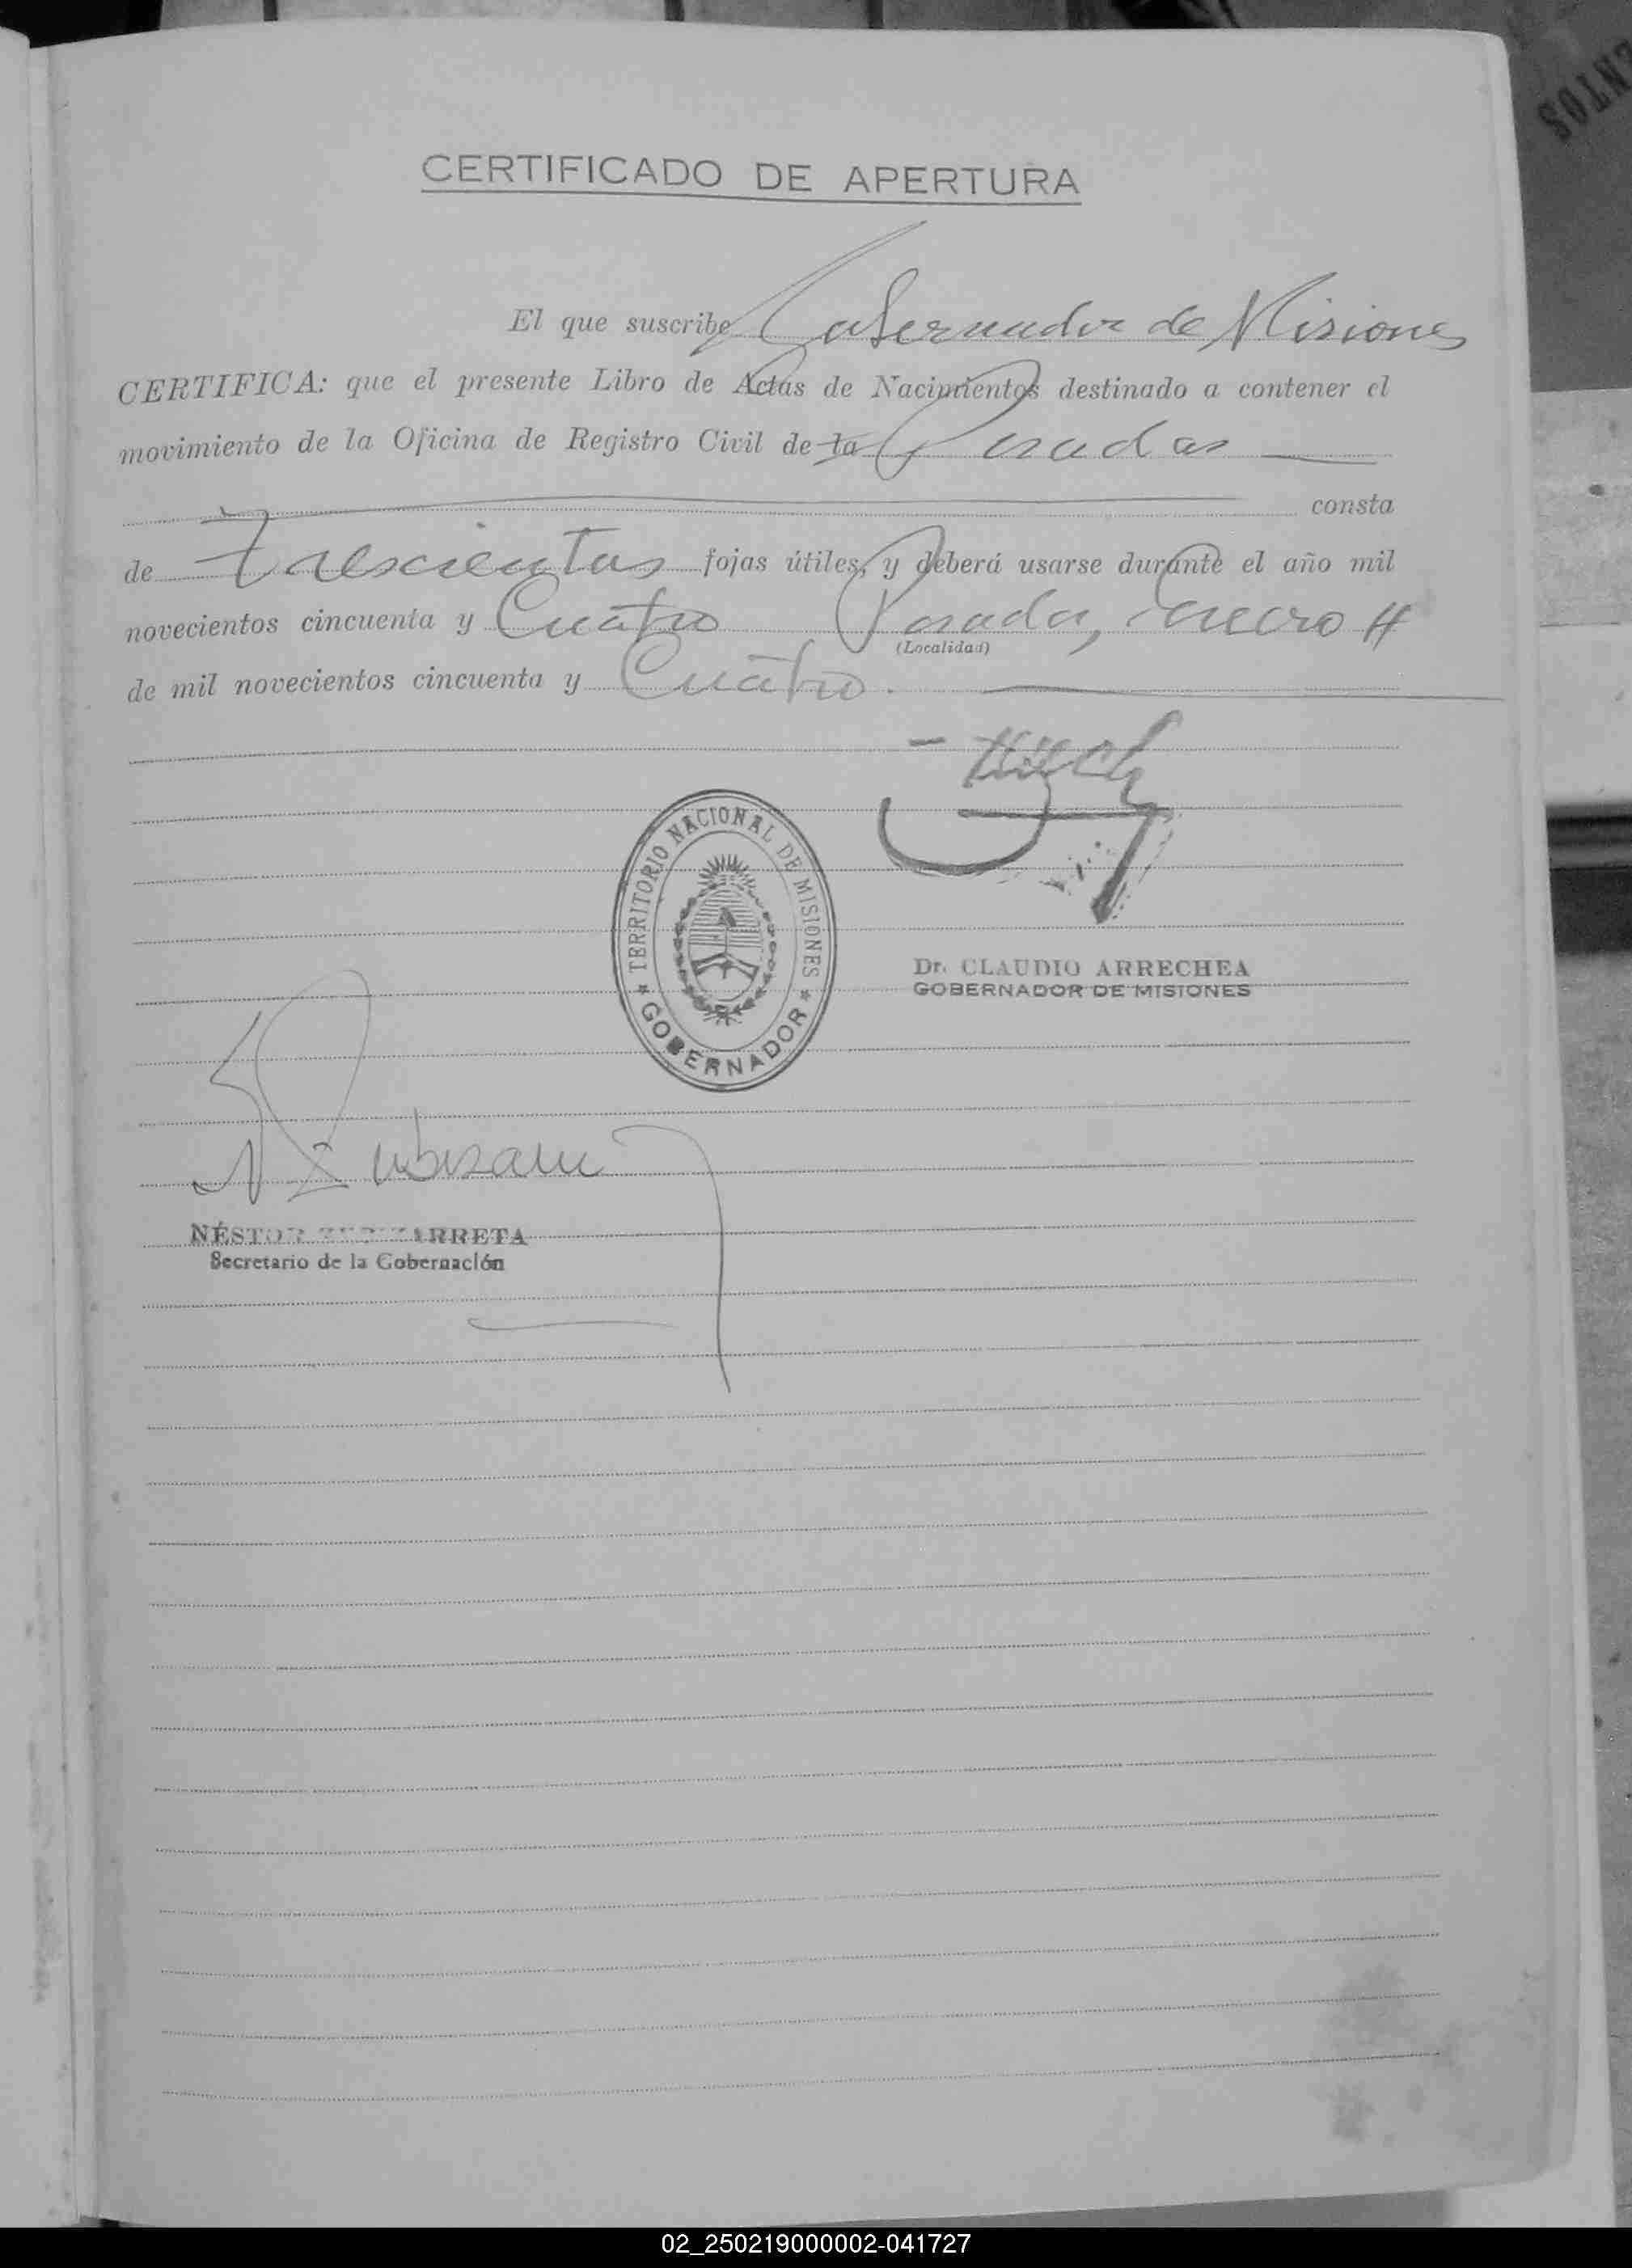 ENTOS
CERTIFICADO DE APERTURA
El que suscribe Gobernador de Misiones
CERTIFICA: que el presente Libro de Actas de Nacimientos destinado a contener el
movimiento de la Oficina de Registro Civil de la Posadas
consta
de Trescientas fojas útiles, y deberá usarse durante el año mil
novecientos cincuenta y Cuatro Posadas, Enero
(Localidad)
de mil novecientos cincuenta y Cuatro.
TERRITORIO NACIONAL DE MISIONES
GOBERNADOR
Dr. CLAUDIO ARRECHEA
GOBERNADOR DE MISIONES
NÉSTOR
Secretario de la Gobernación
02_250219000002-041727